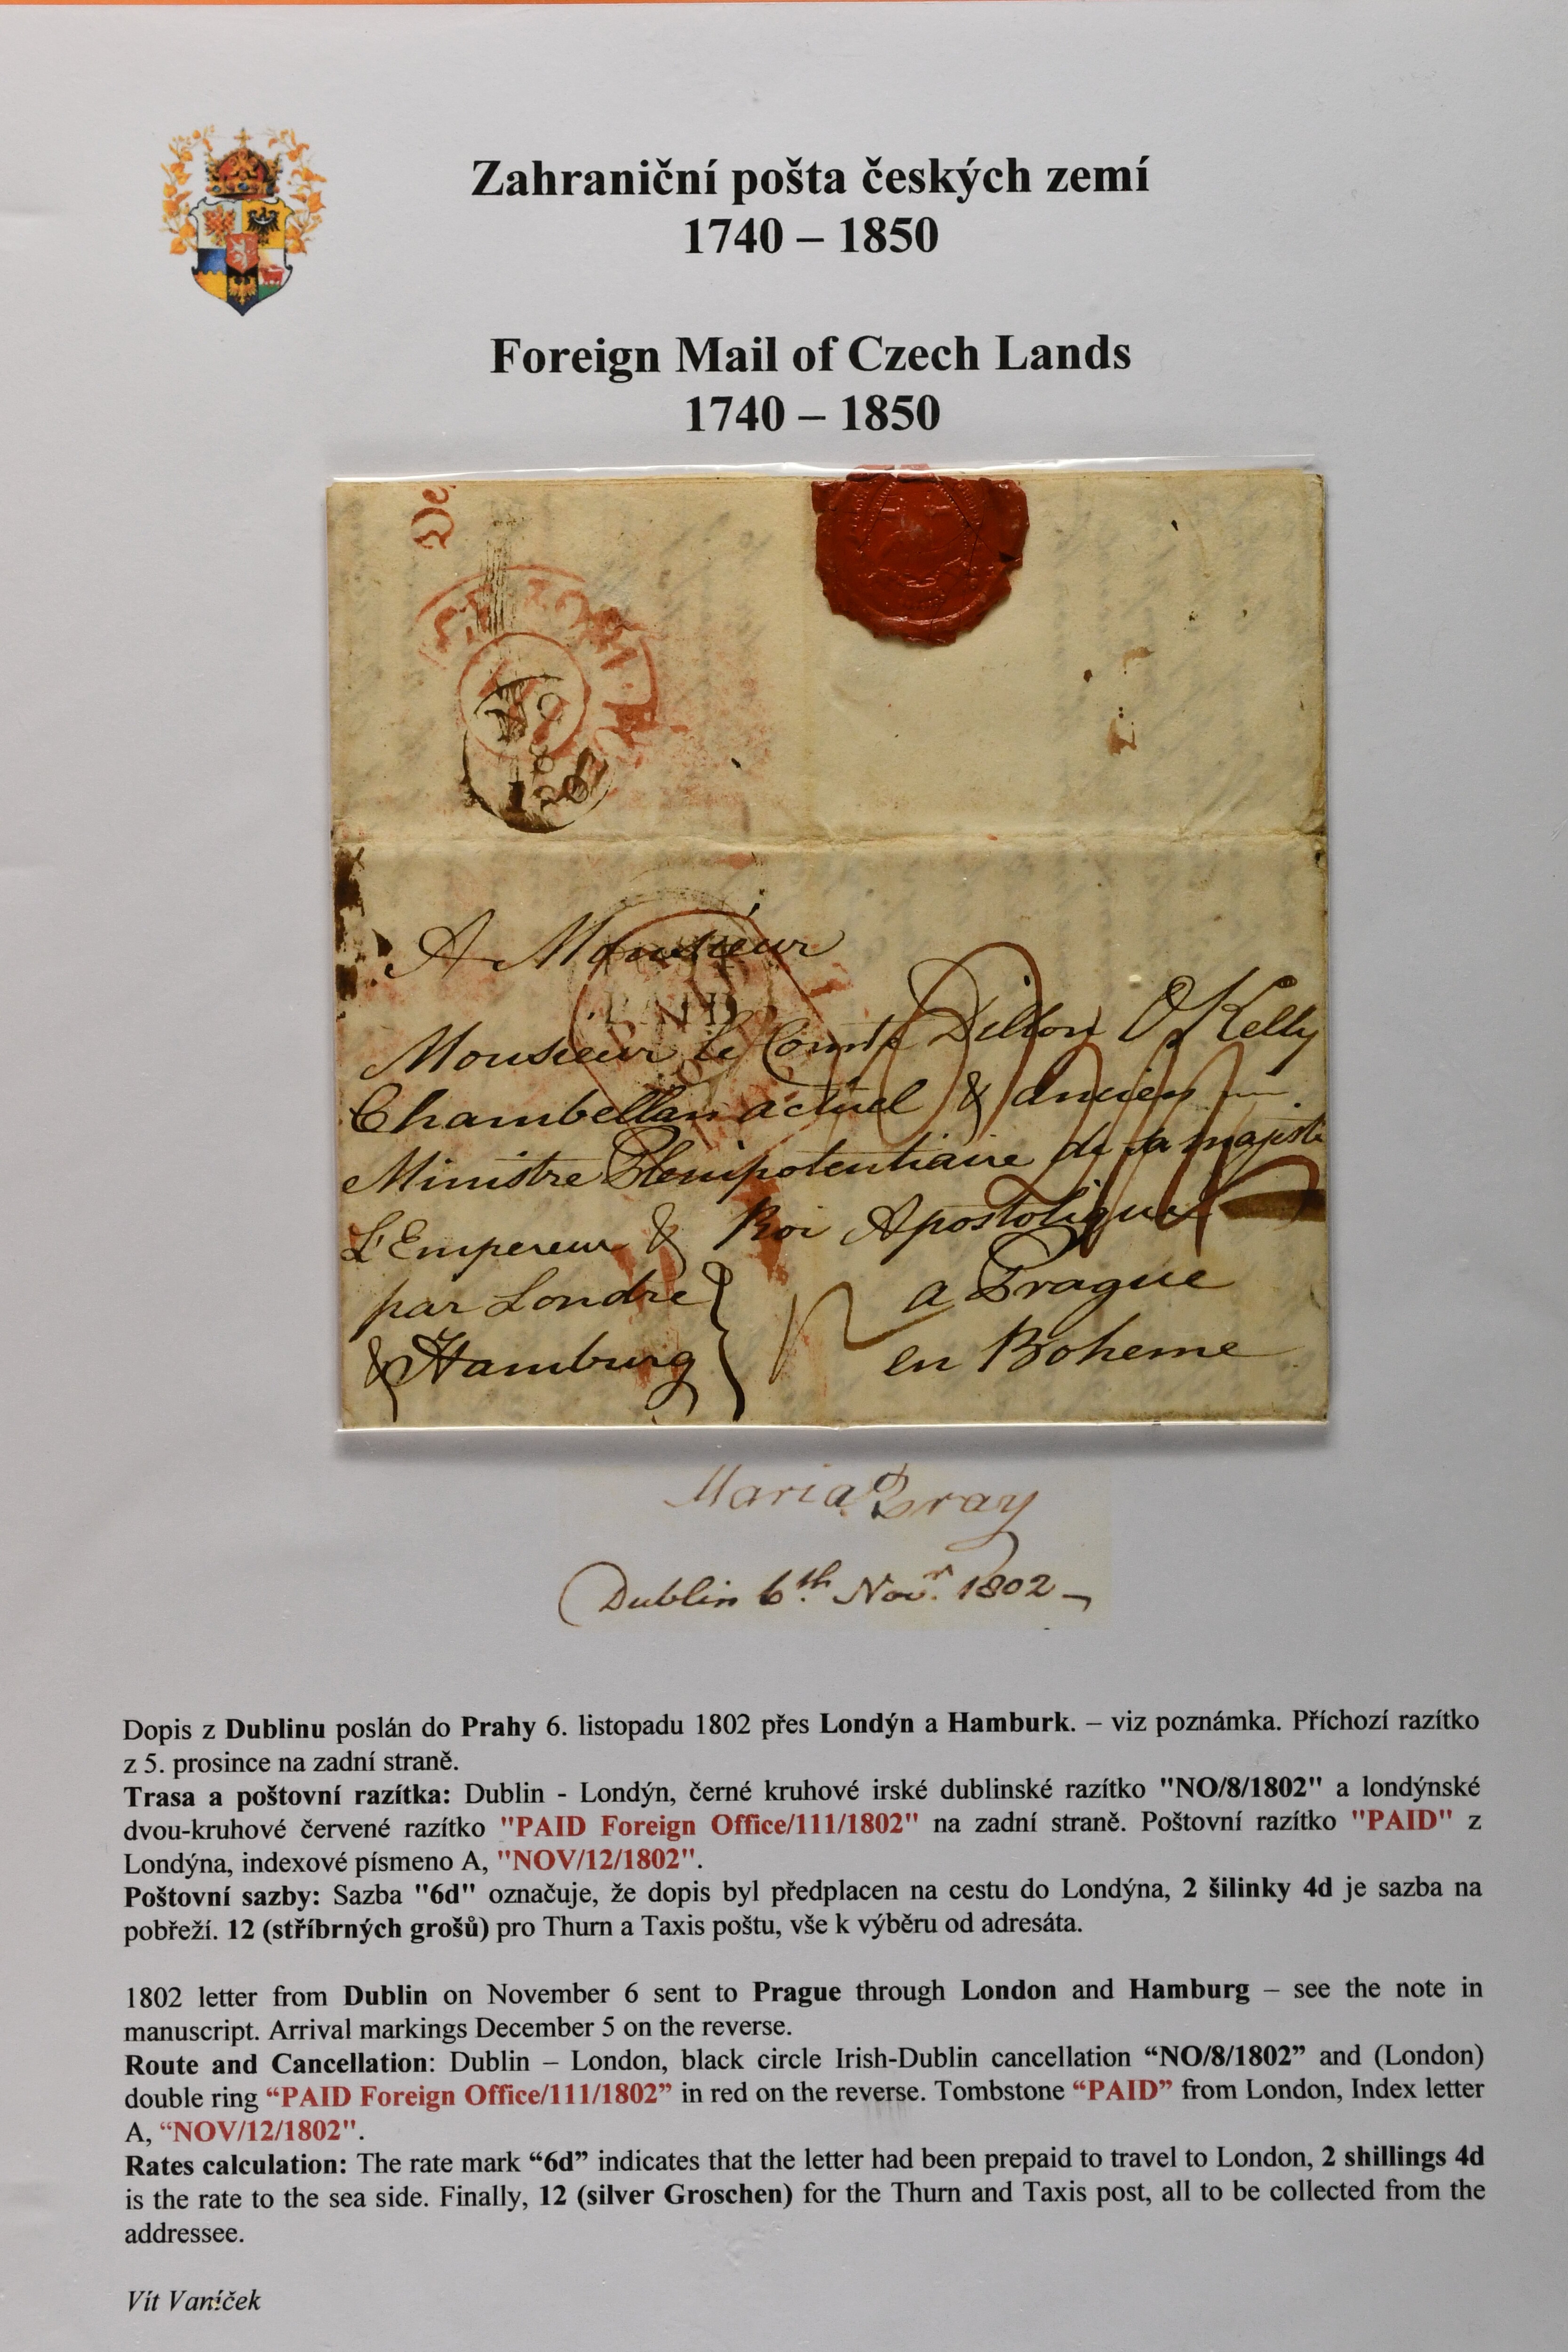 Zahraniční pošta českých zemí
1740 – 1850
Foreign Mail of Czech Lands
1740 – 1850
De
A Monsieur
PAID
Monsieur le Comte Dillon O'Kelly
Chambellan actuel & ancien
Ministre Plenipotentiaire de sa majesté
L'Empereur & Roi Apostolique
par Londre
a Prague
& Hamburg
12
en Boheme
Maria Bray
Dublin 6th Novr. 1802
Dopis z Dublinu poslán do Prahy 6. listopadu 1802 přes Londýn a Hamburk. – viz poznámka. Příchozí razítko
z 5. prosince na zadní straně.
Trasa a poštovní razítka: Dublin - Londýn, černé kruhové irské dublinské razítko "NO/8/1802" a londýnské
dvou-kruhové červené razítko "PAID Foreign Office/111/1802" na zadní straně. Poštovní razítko "PAID" z
Londýna, indexové písmeno A, "NOV/12/1802".
Poštovní sazby: Sazba "6d" označuje, že dopis byl předplacen na cestu do Londýna, 2 šilinky 4d je sazba na
pobřeží. 12 (stříbrných grošů) pro Thurn a Taxis poštu, vše k výběru od adresáta.
1802 letter from Dublin on November 6 sent to Prague through London and Hamburg – see the note in
manuscript. Arrival markings December 5 on the reverse.
Route and Cancellation: Dublin – London, black circle Irish-Dublin cancellation “NO/8/1802” and (London)
double ring “PAID Foreign Office/111/1802” in red on the reverse. Tombstone “PAID” from London, Index letter
A, “NOV/12/1802".
Rates calculation: The rate mark “6d” indicates that the letter had been prepaid to travel to London, 2 shillings 4d
is the rate to the sea side. Finally, 12 (silver Groschen) for the Thurn and Taxis post, all to be collected from the
addressee.
Vít Vaníček